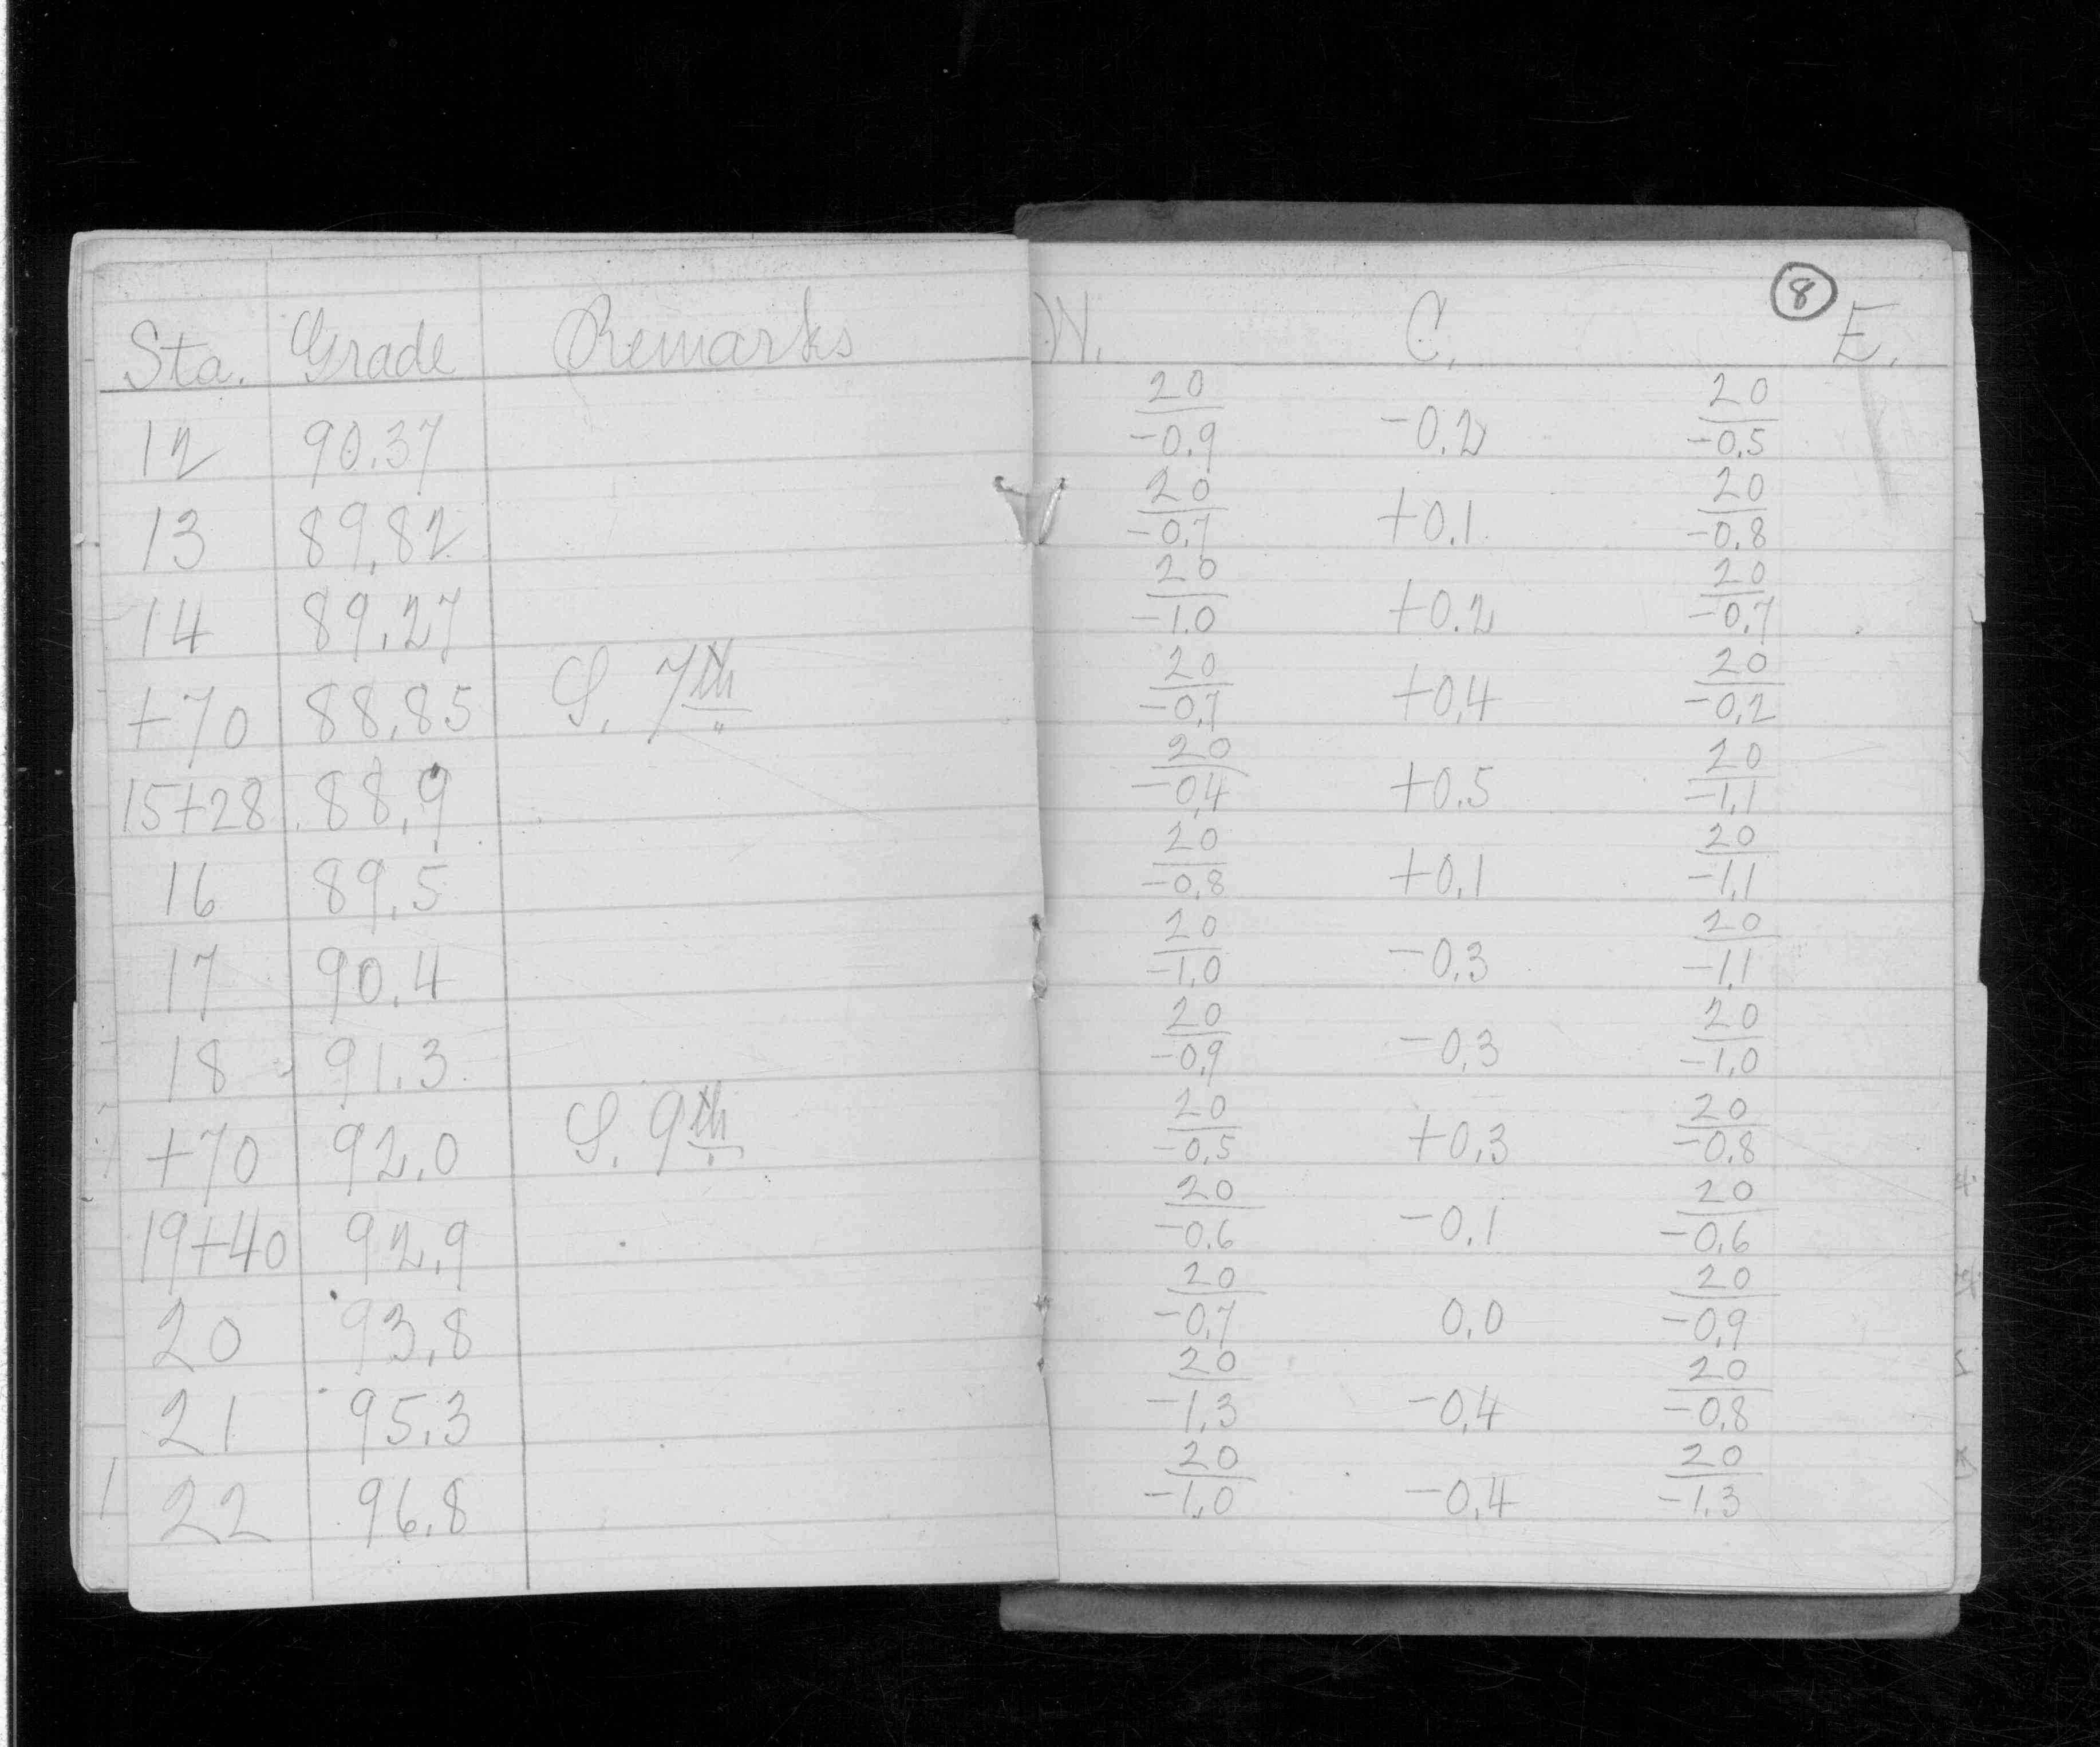 8
Sta. Grade Remarks W. C. E.
12 90.37 20/-0.9 -0.2 20/-0.5
13 89.82 20/-0.7 +0.1 20/-0.8
14 89.27 20/-1.0 +0.2 20/-0.7
+70 88.85 S. 7th 20/-0.7 +0.4 20/-0.2
15+28 88.9 20/-0.4 +0.5 20/-1.1
16 89.5 20/-0.8 +0.1 20/-1.1
17 90.4 20/-1.0 -0.3 20/-1.1
18 91.3 20/-0.9 -0.3 20/-1.0
+70 92.0 S. 9th 20/-0.5 +0.3 20/-0.8
19+40 92.9 20/-0.6 -0.1 20/-0.6
20 93.8 20/-0.7 0.0 20/-0.9
21 95.3 20/-1.3 -0.4 20/-0.8
22 96.8 20/-1.0 -0.4 20/-1.3